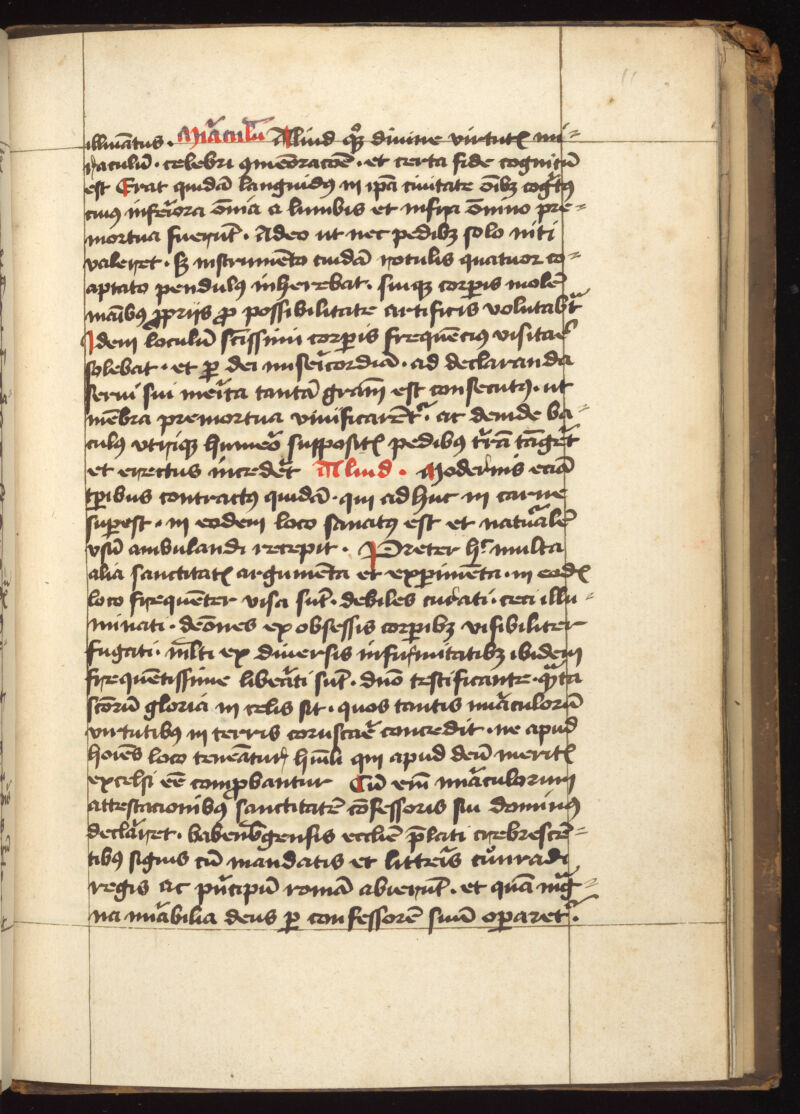 11
illuatus. Miraculū Aliud qq̄ divine virtut mi=
raculū. celebri ꝯmeōracōe. et certa fide cognitū
est Erat quidā languidus in ip̄a civitate oībꝫ cogͥtꝰ
cuiꝰ inferiora ōmia a lumbis et infra ōmino pre=
mortua fuerūt. Adeo ut nec pedibꝫ solo niti
valeret. sꝫ instrumēto cuidā rotulis quatuor co=
aptato pendulꝰ inherebat. suiqꝫ corꝑis molē
maībus ꝓpriis ꝓ possibilitate artificis volutabͣt
Idem loculū sctissimi corꝑis frequēcius visitaē
solebat. et ꝑ dei misericordiā. ad declaranda
servi sui merita tantā grām est consecutꝰ. ut
mēbra premortua vivificarēt. ac deinde ba=
culꝰ utriqꝫ humero supposit pedibꝰ trām tāgeret
et errectus incederet Aliud. Modernis eciā
tꝑibus contractꝰ quidā. qui ad huc in carne
suꝑest. in eodem loco sanatꝰ est et naturalē
usū ambulandi recepit. Preter hͨ multa
alia sanctitatꝭ argumēta et exꝑimēta. in eodē
loco frequēter visa sūt. debiles curati. ceci illu=
minati. demōes ex obsessis corꝑibꝫ visibiliter
fugati. mlti ex diversis infirmitatibꝫ ibidem
frequētissime liberati sūt. dn̄o testificante. qͣta
sctorū gloria in celis sit. quos tantis miraculorū
virtutibꝰ in terris coruscare concedit. ne apud
hoīes loco teneātur hūili qui apud deū meritꝭ
excelsi eē comꝓbantur Cū em̄ miraculorum
attestacionibꝰ sanctitatē cōfessoris sui dominꝰ
declaret. babenbͬgensis ecclie p̄lati crebrescē=
tibꝰ signis cū mandatis et litteris cuͦnradi
regis ac principū romā abierūt. et quā mag=
na mirabilia deus ꝑ confessorē suū oꝑaret.